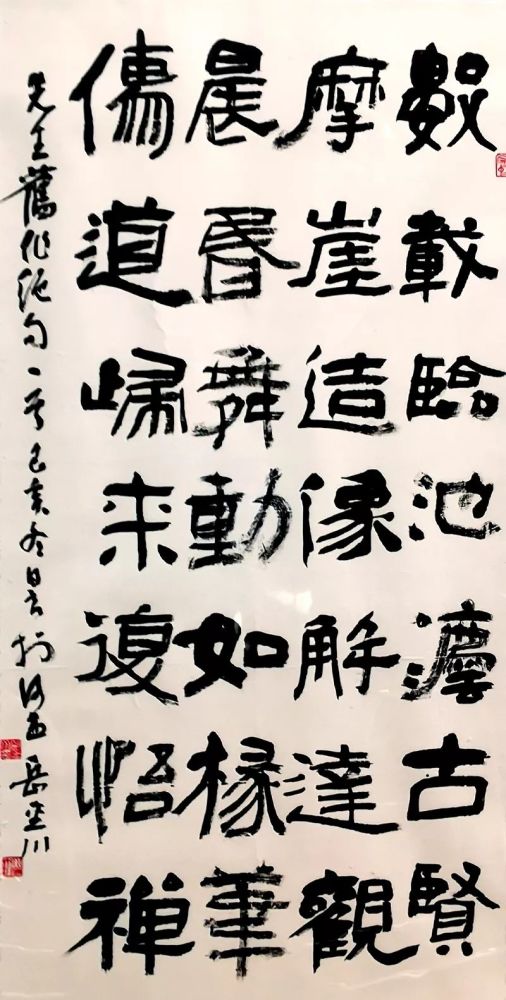 數載臨池灋古賢
摩崖造像解達觀
晨昏舞動如椽筆
道歸來復悟禪
先生舊作絕句一首己亥冬日書於 岳 川